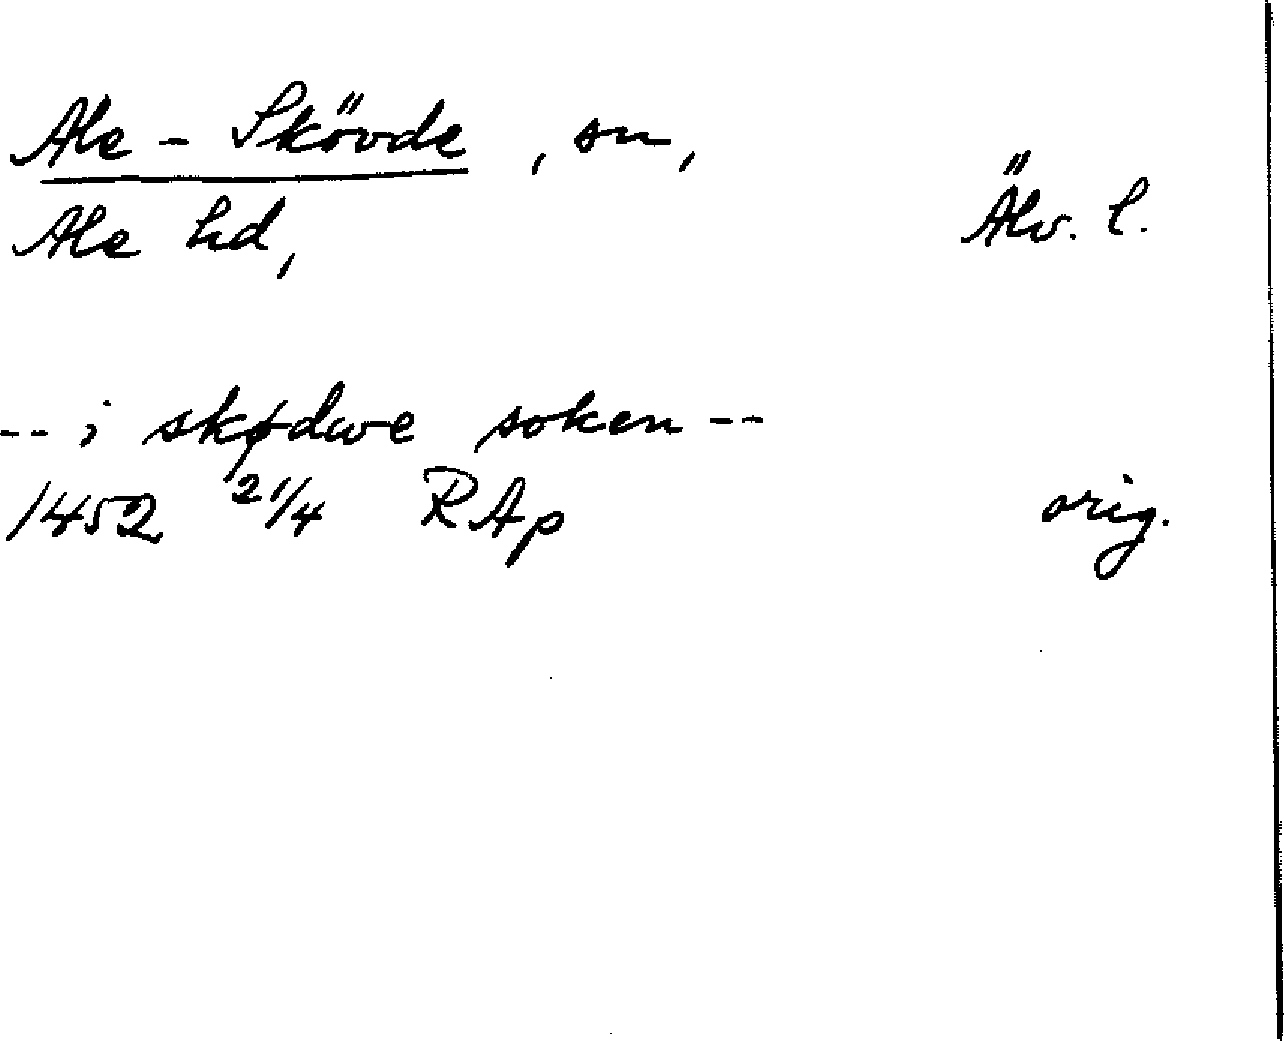 Ale - Skövde, sn,
Ale hd, Älv. l.
-- i skødwe soken --
1452 21/4 RAp orig.